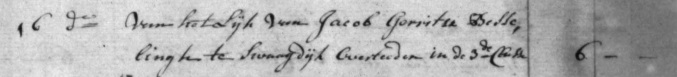 16 do Van het Lijk van Jacob Gerritse Besse,
lingh te Swaagdijk Overleeden in de 3de Classe 6 - -